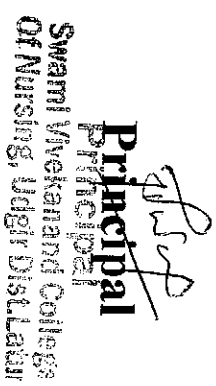 Principal
Principal
Swami Vivekanand College
Of Nursing, Udgir Dist.Latur